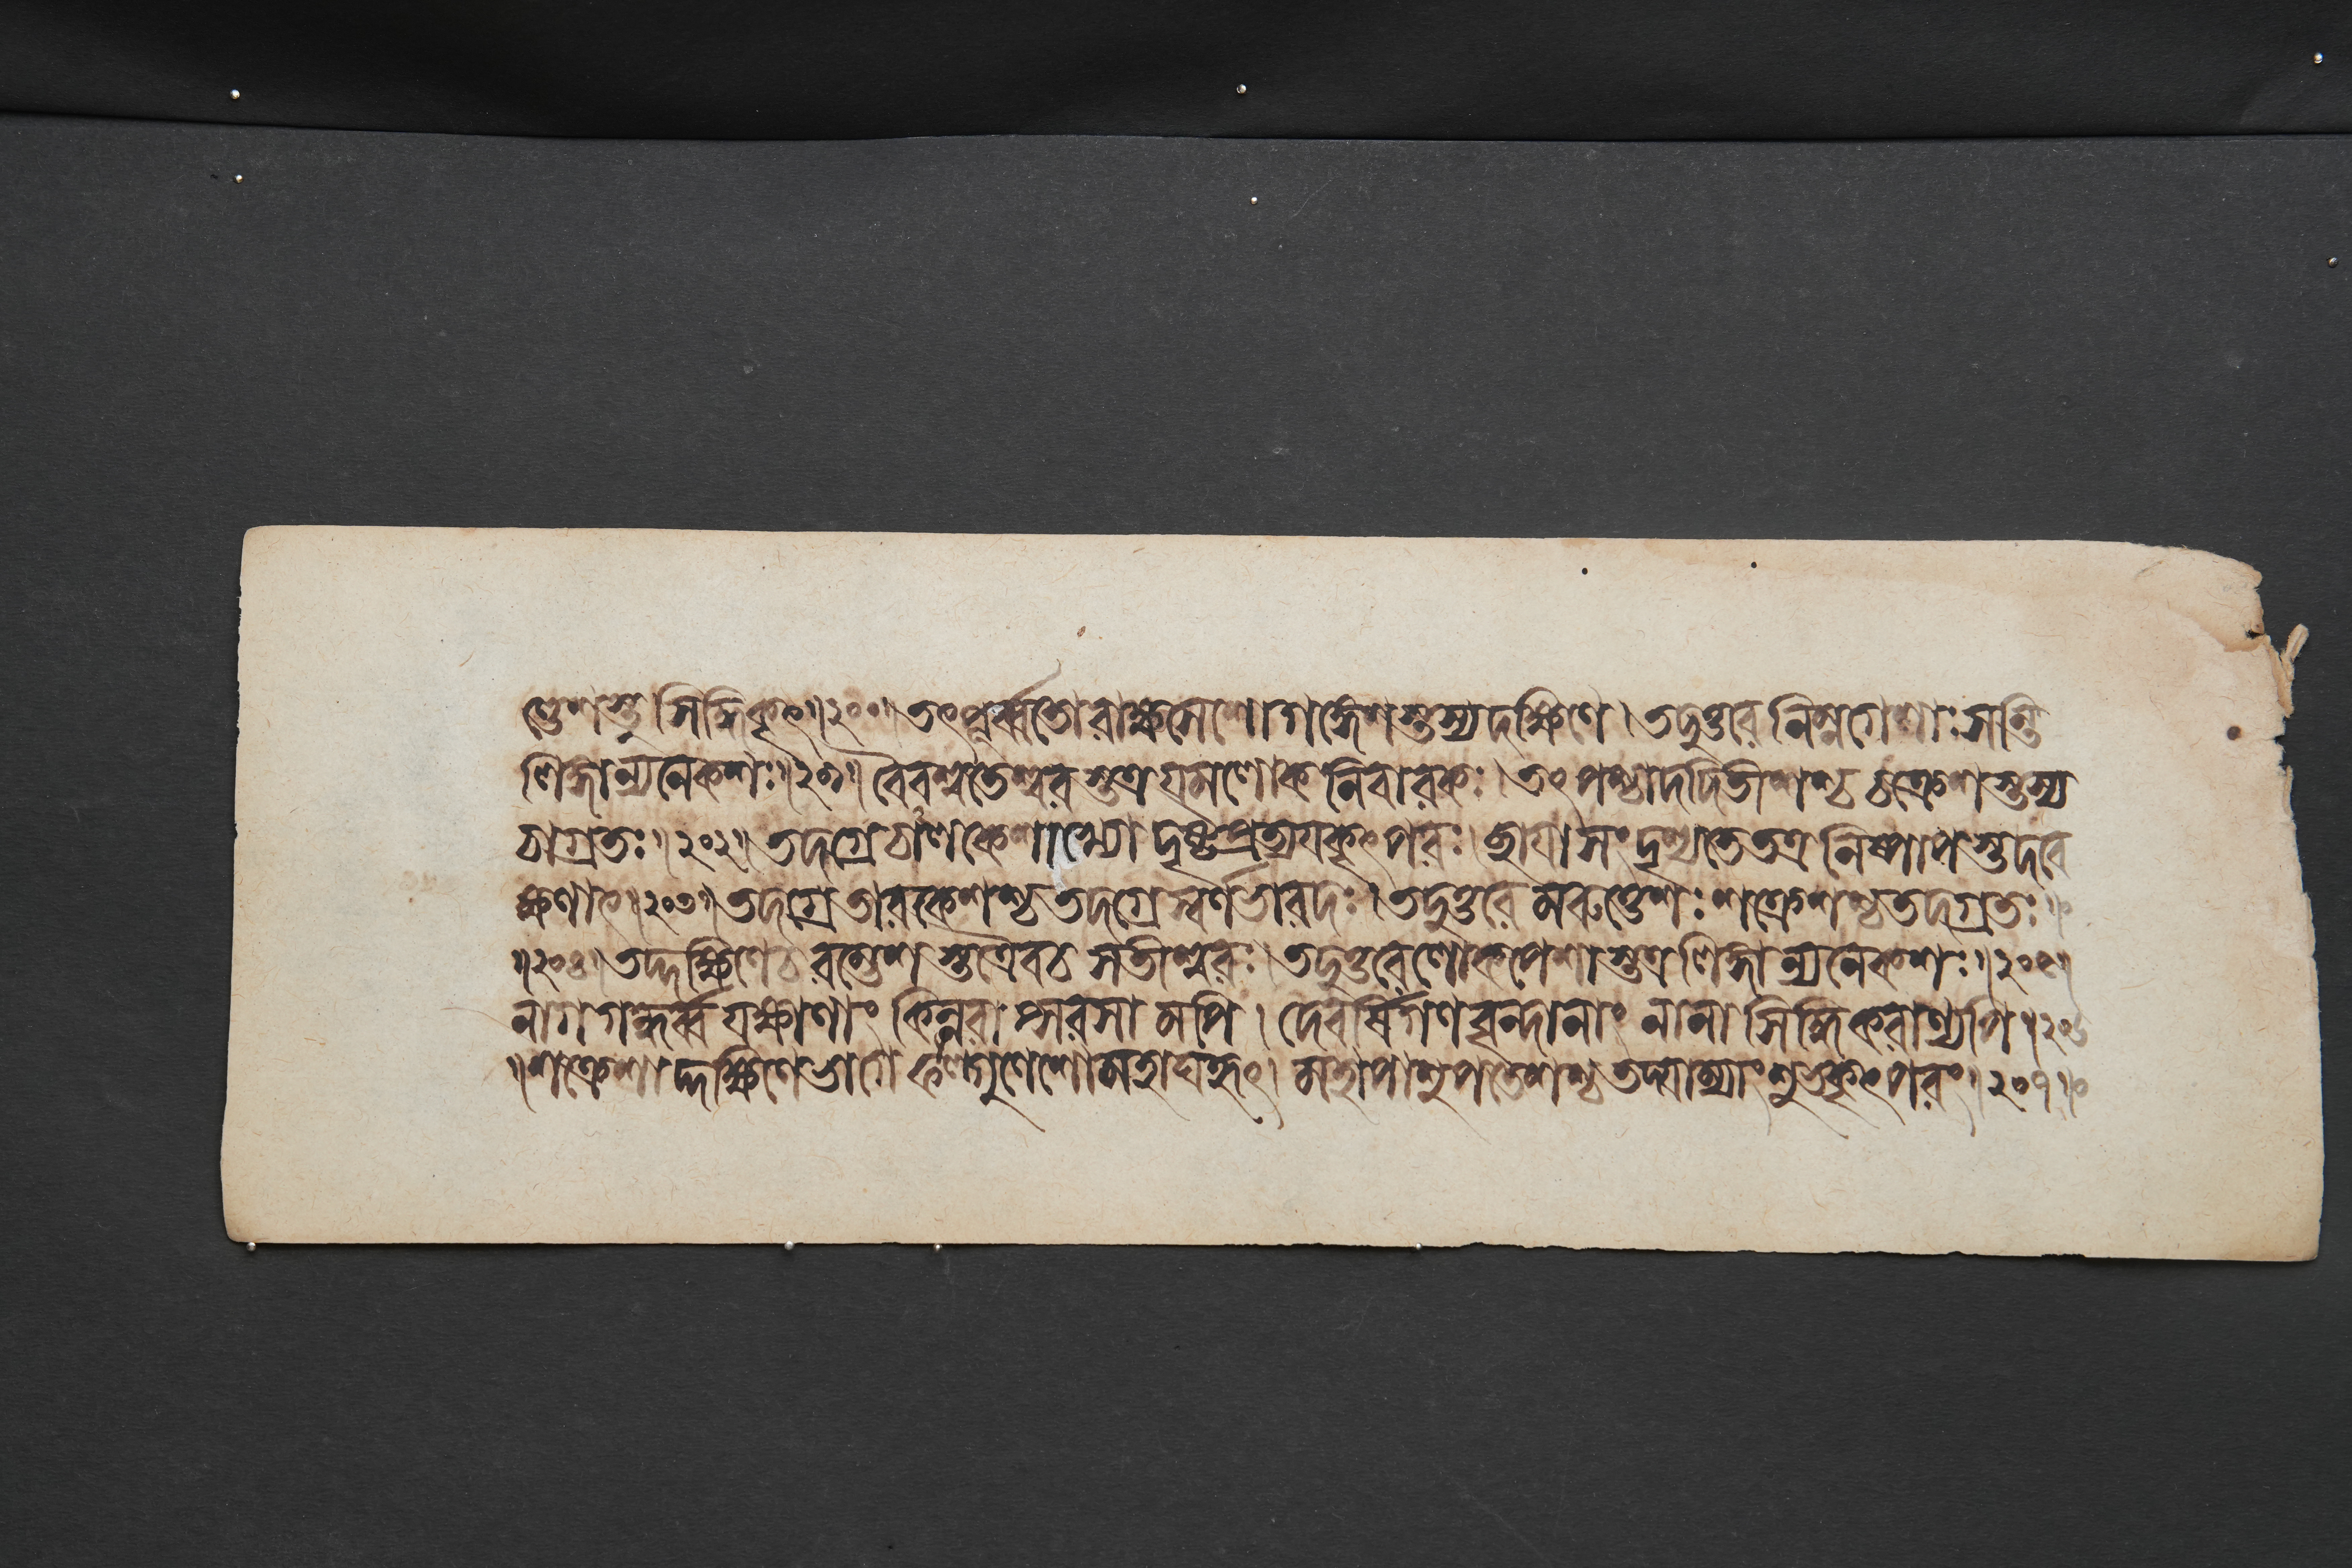 ণ্ডেশস্তু সিদ্ধিকৃৎ॥২০০॥ তৎপূর্ব্বতো রাক্ষসেশো গঙ্গেশস্তস্য দক্ষিণে। তদুত্তরে নিম্নগেশাঃ সন্তি
লিঙ্গান্যনেকশঃ॥২০১॥ বৈবস্বতেশ্বরস্তত্র যমলোক নিবারকঃ। তৎপশ্চাদদিতীশশ্চ চক্রেশস্তস্য
চাগ্রতঃ॥২০২॥ তদগ্রে চালকেশাখ্যো দৃষ্টপ্রত্যয়কৃৎপরঃ। ছায়া সংদৃশ্যতে তত্র নিষ্পাপস্তদবে
ক্ষণাৎ॥২০৩॥ তদগ্রে তারকেশশ্চ তদগ্রে স্বর্ণভারদঃ। তদুত্তরে মরুত্তেশঃ শক্রেশশ্চ তদগ্রতঃ
॥২০৪॥ তদ্দক্ষিণে চ রম্ভেশস্তত্রৈব চ সতীশ্বরঃ। তদুত্তরে লোকপেশাস্তত্র লিঙ্গান্যনেকশঃ॥২০৫॥
নাগগন্ধর্ব্বযক্ষাণাং কিন্নরাপ্সরসামপি। দেবর্ষিগণবৃন্দানাং নানাসিদ্ধিকরাণ্যপি॥২০৬
॥শক্রেশাদ্দক্ষিণে ভাগে ফল্গুণেশো মহাঘহৃৎ। মহাপাশুপতেশশ্চ তদ্যাম্যাং শুভকৃৎপরং॥২০৭॥